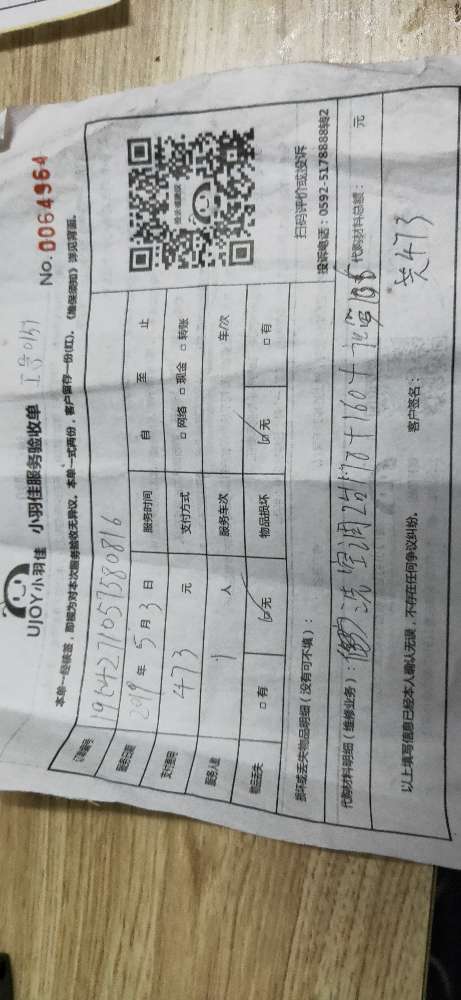 UJOY小羽佳 小羽佳服务验收单
No.0064964
本单一经核签，即视为对本次服务验收无异议。本单一式两份，客户留存一份(红)。《维保须知》详见背面。
订单编号：
服务日期 2019 年 5 月 3 日 服务时间 自 至 止
支付费用 473 元 支付方式 □网络 □现金 □转账
服务人数 1 人 服务车次 车/次
物品丢失 □有 ☑无 物品损坏 ☑无 □有
扫码评价或投诉
投诉电话：0592-5178888转2
损坏或丢失物品明细（没有可不填）：
代购材料明细（维修业务）： 洗空调 +160+ 代购材料总额： 元
共473
以上填写信息已经本人确认无误，不存在任何争议纠纷。 客户签名：